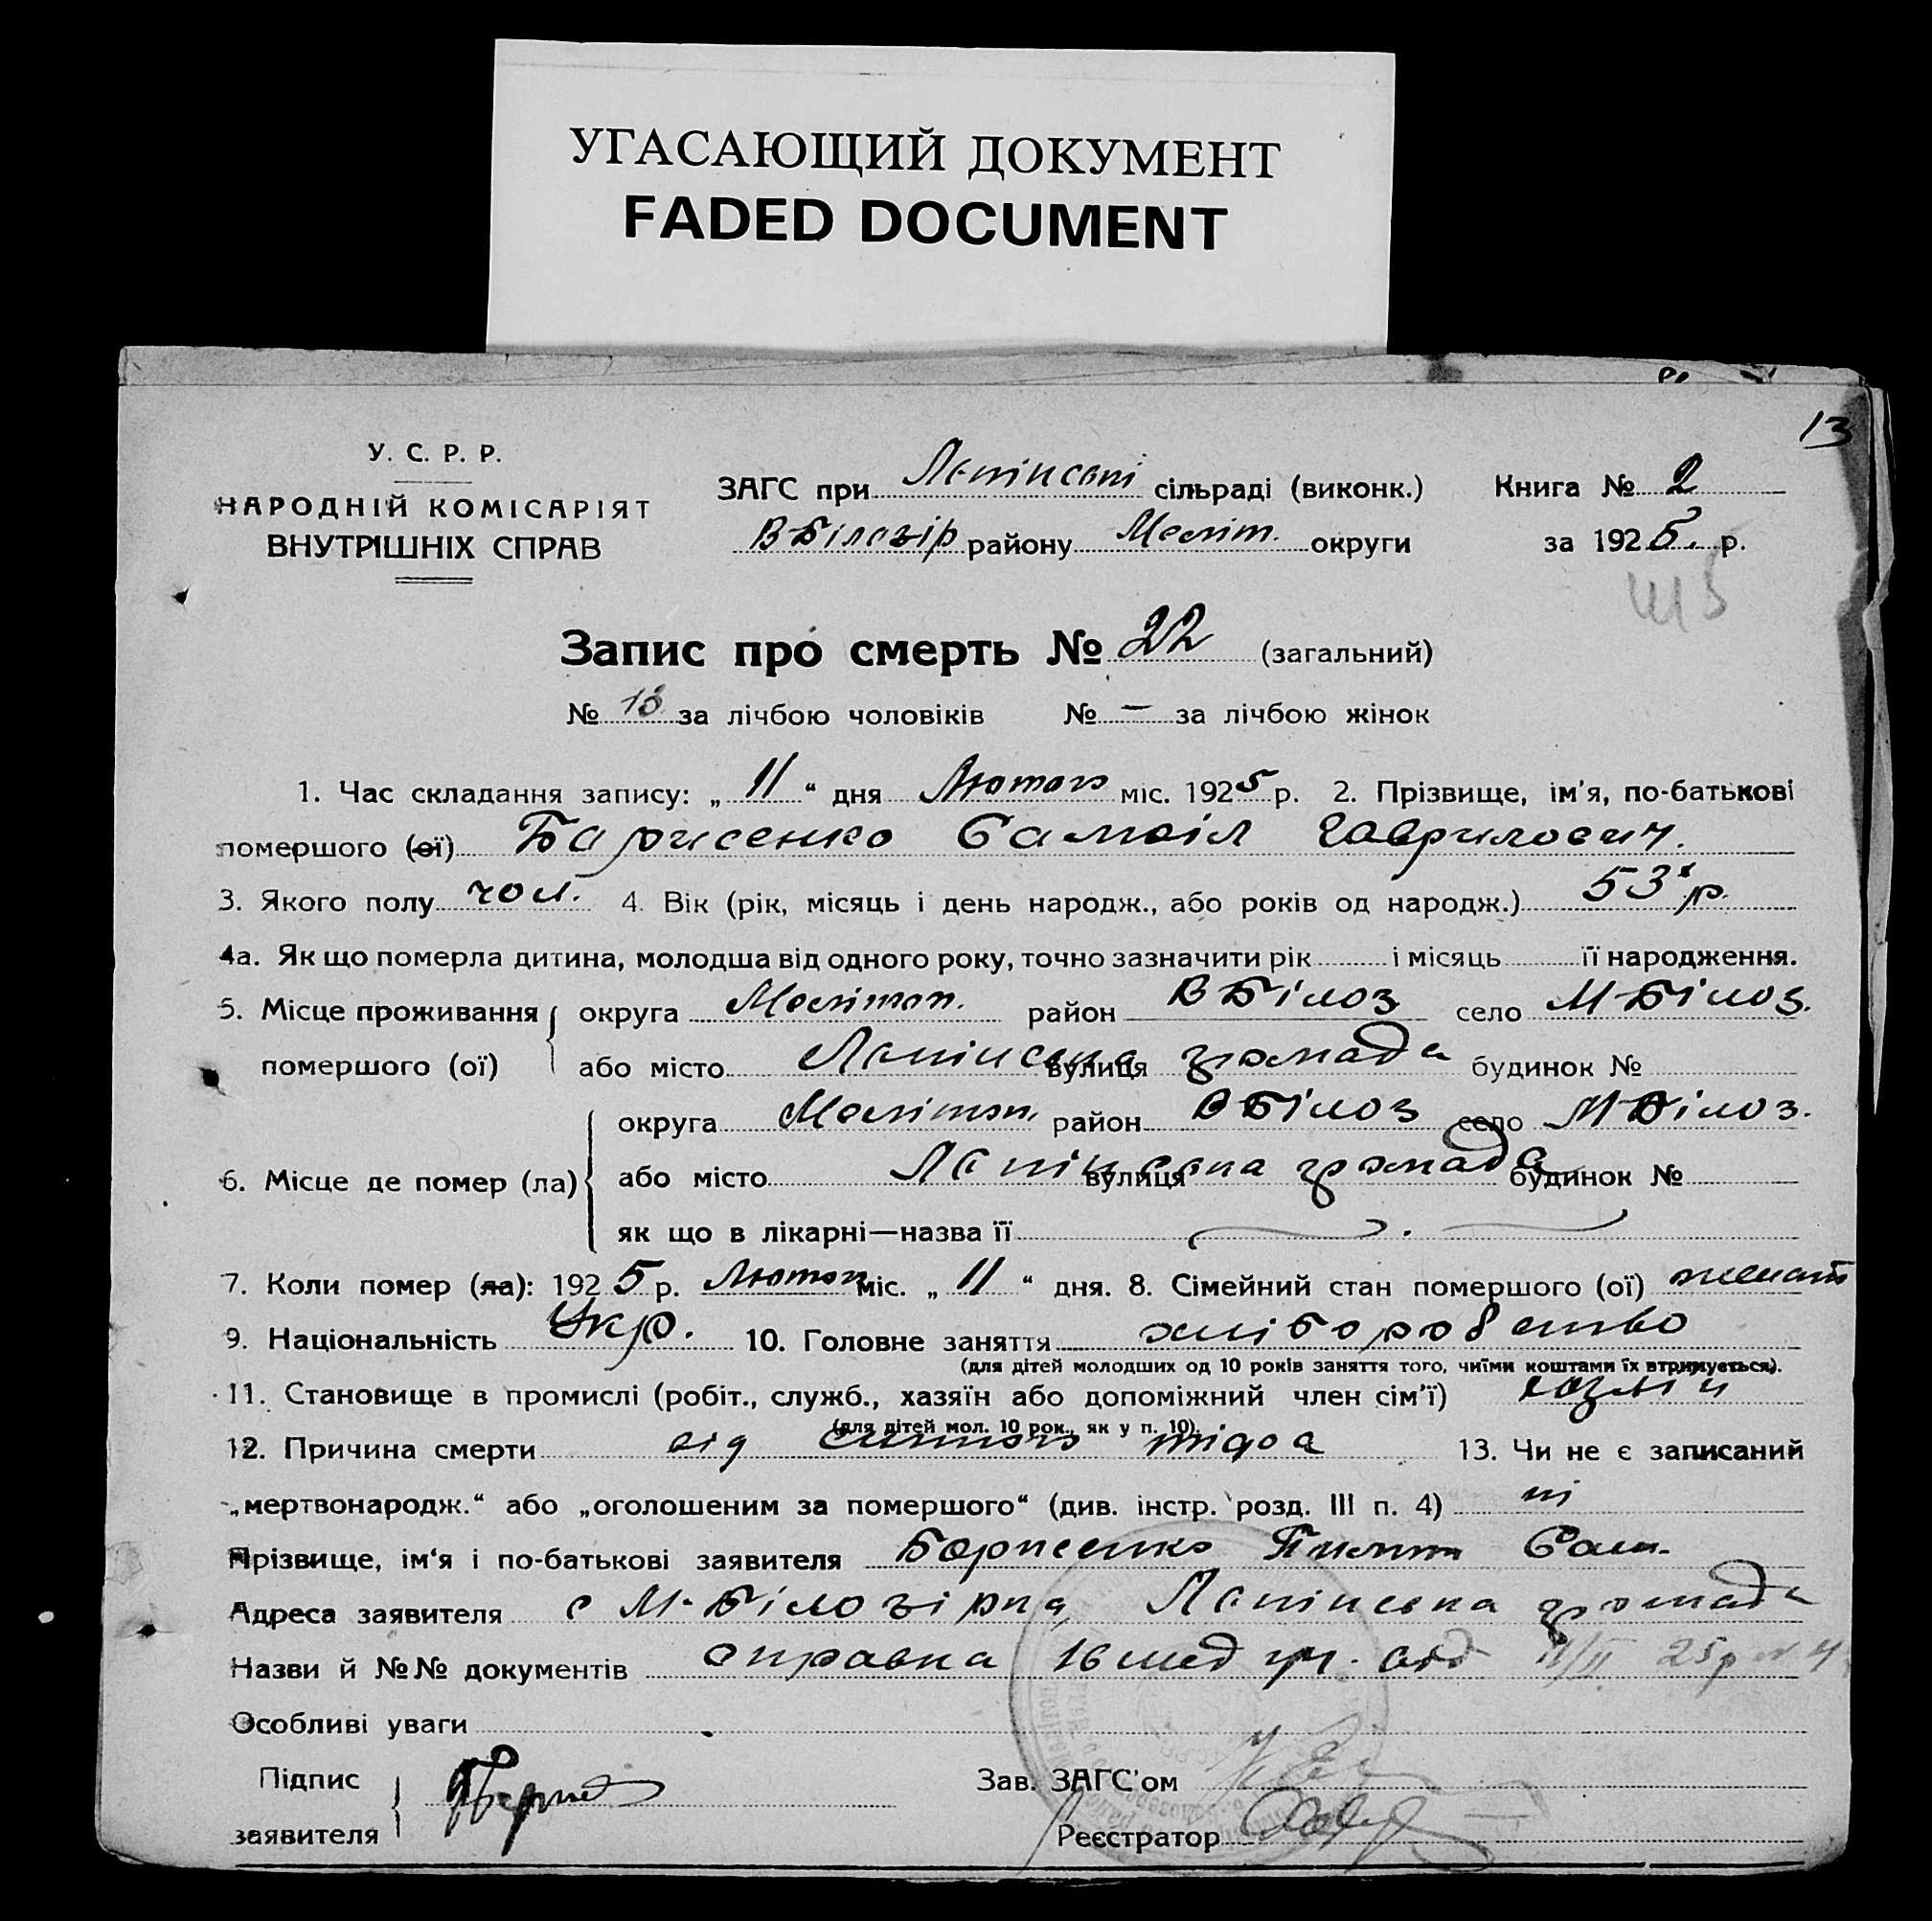 УГАСАЮЩИЙ ДОКУМЕНТ
FADED DOCUMENT
13
У. С. Р. Р.
НАРОДНІЙ КОМІСАРІЯТ
ВНУТРІШНІХ СПРАВ
ЗАГС при сільраді (виконк.) Книга № 2
В Білозір району Меліт. округи за 1925 р.
Запис про смерть № 22 (загальний)
№ 13 за лічбою чоловіків № — за лічбою жінок
1. Час складання запису: „ 11 “ дня Лютого міс. 1925 р. 2. Прізвище, ім’я, по-батькові
помершого (ої) Борисенко Самоіл Гаврилович.
3. Якого полу чол. 4. Вік (рік, місяць і день народж., або років од народж.) 53 р.
4а. Як що померла дитина, молодша від одного року, точно зазначити рік і місяць її народження.
5. Місце проживання округа Мелітоп. район В Білоз село М Білоз.
помершого (ої) або місто вулиця громада будинок №
округа Мелітоп. район В Білоз село М Білоз.
6. Місце де помер (ла) або місто вулиця громада будинок №
як що в лікарні—назва її
7. Коли помер (ла): 1925 р. Лютого міс. „ 11 “ дня. 8. Сімейний стан помершого (ої) женат
9. Національність Укр. 10. Головне заняття хліборобство
(для дітей молодших од 10 років заняття того, чиїми коштами їх втримується).
11. Становище в промислі (робіт., служб., хазяїн або допоміжний член сім’ї) хазяін
(для дітей мол. 10 рок., як у п. 10).
12. Причина смерти від 13. Чи не є записаний
„мертвонародж.“ або „оголошеним за помершого“ (див. інстр. розд. III п. 4) ні
Прізвище, ім‘я і по-батькові заявителя Борисенко Сам.
Адреса заявителя с М-Білозірка, громада
Назви й №№ документів справка 16 мед від 11/II 25р № 4
Особливі уваги
Підпис
заявителя
Зав. ЗАГС’ом
Реєстратор